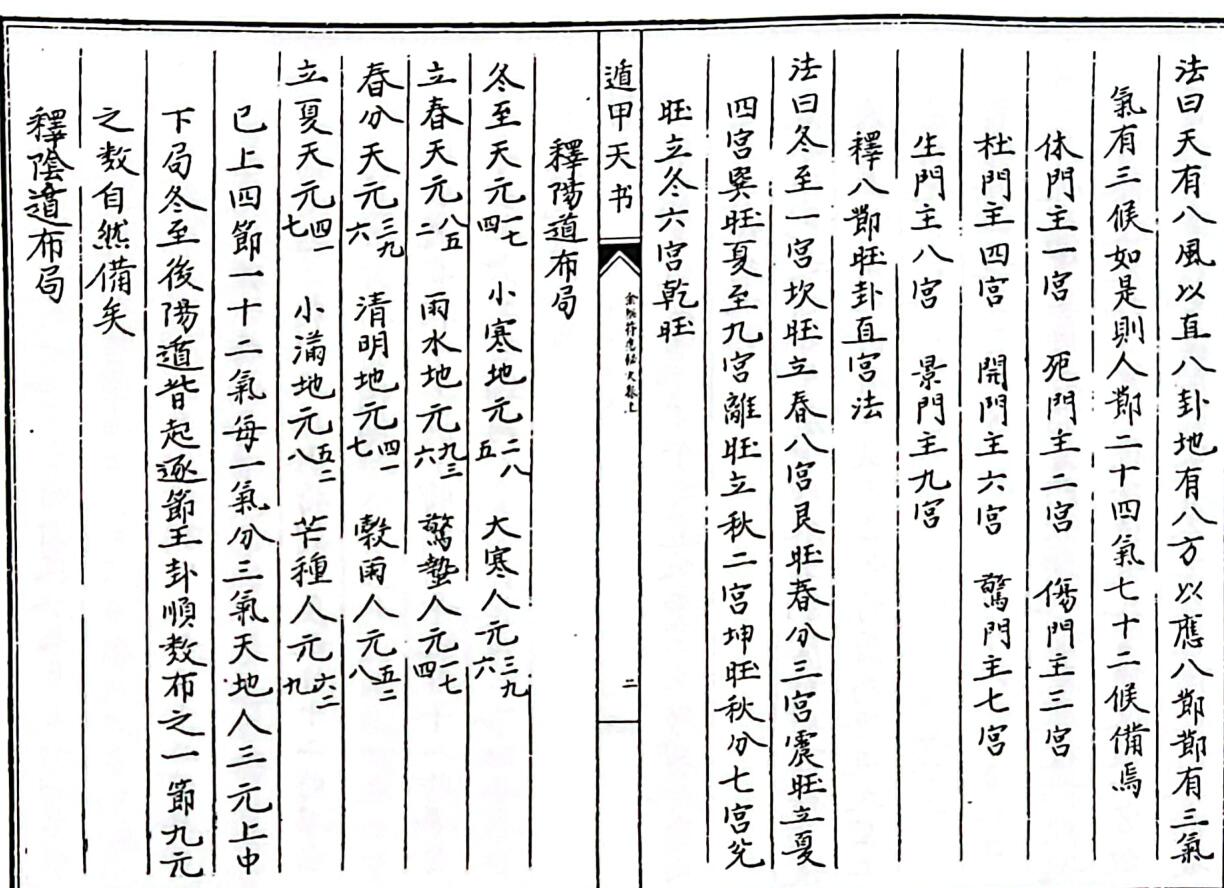 法曰天有八風以直八卦地有八方以應八節節有三氣
氣有三候如是則人節二十四氣七十二候備焉
休門主一宮　死門主二宮　傷門主三宮
杜門主四宮　開門主六宮　驚門主七宮
生門主八宮　景門主九宮
釋八節旺卦直宮法
法曰冬至一宮坎旺立春八宮艮旺春分三宮震旺立夏
四宮巽旺夏至九宮離旺立秋二宮坤旺秋分七宮兌
旺立冬六宮乾旺
遁甲天书
二
釋陽遁布局
冬至天元一七四　小寒地元二八五　大寒人元三九六
立春天元八五二　雨水地元九三六　驚蟄人元一七四
春分天元三九六　清明地元四一七　穀雨人元五二八
立夏天元四一七　小滿地元五二八　芒種人元六二九
已上四節一十二氣每一氣分三氣天地人三元上中
下局冬至後陽遁皆起逐節王卦順数布之一節九元
之数自然備矣
釋陰遁布局